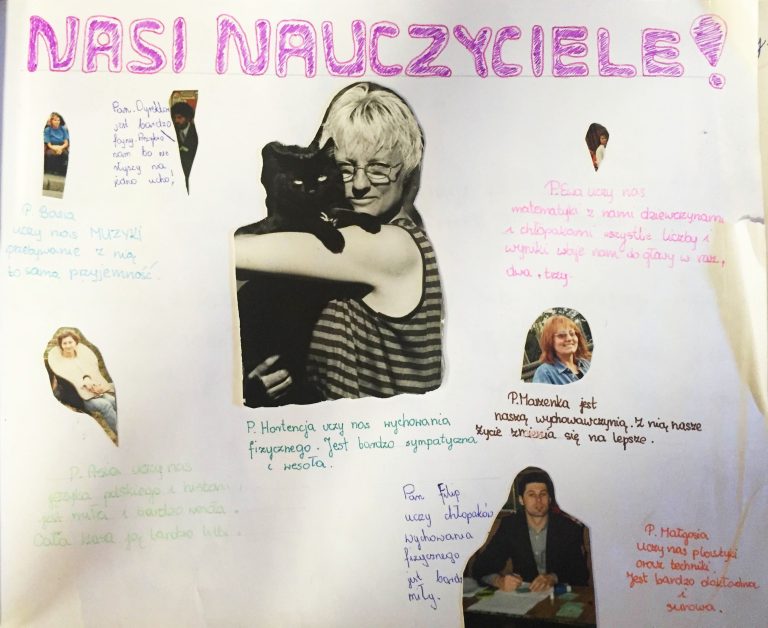 NASI NAUCZYCIELE!
Pan. Dyrektor
jest bardzo
fajny.
nam to nie
słyszy na
jedno ucho!
P. Basia
uczy nas MUZYKI
przebywanie z nią
to sama przyjemność.
P. Ewa uczy nas
matematyki z nami dziewczynami
i chłopakami wszystkie liczby i
wyniki wbije nam do głowy w raz,
dwa, trzy.
P. Marzenka jest
naszą wychowawczynią. Z nią nasze
życie zmienia się na lepsze.
P. Hortencja uczy nas wychowania
fizycznego. Jest bardzo sympatyczna
i wesoła.
P. uczy nas
języka polskiego i historii,
jest miła i bardzo wesoła.
Cała klasa ją bardzo lubi.
Pan Filip
uczy chłopaków
wychowania
fizycznego
jest bardzo
miły.
P. Małgosia
uczy nas plastyki
oraz techniki.
Jest bardzo dokładna
i
surowa.